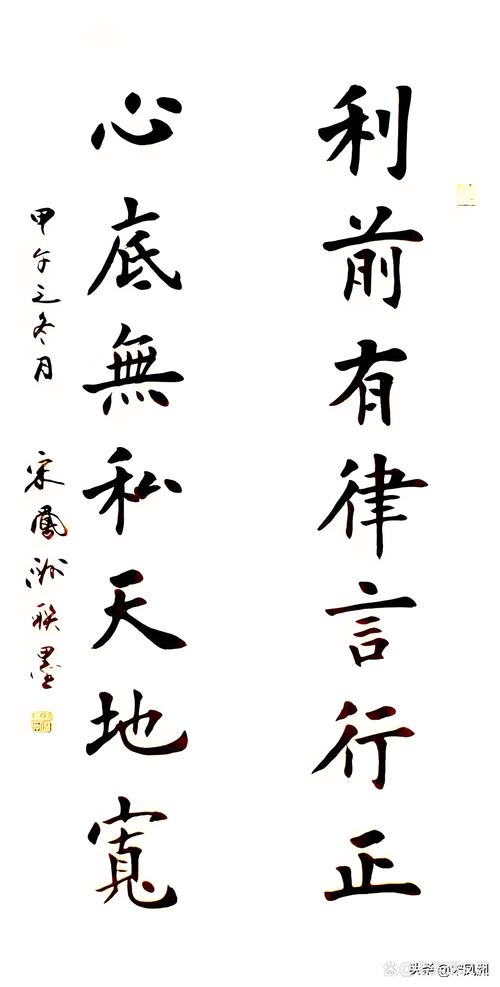 利前有律言行正
心底無私天地寬
甲午之冬月 宋鳳洲联墨
头条 @宋凤洲